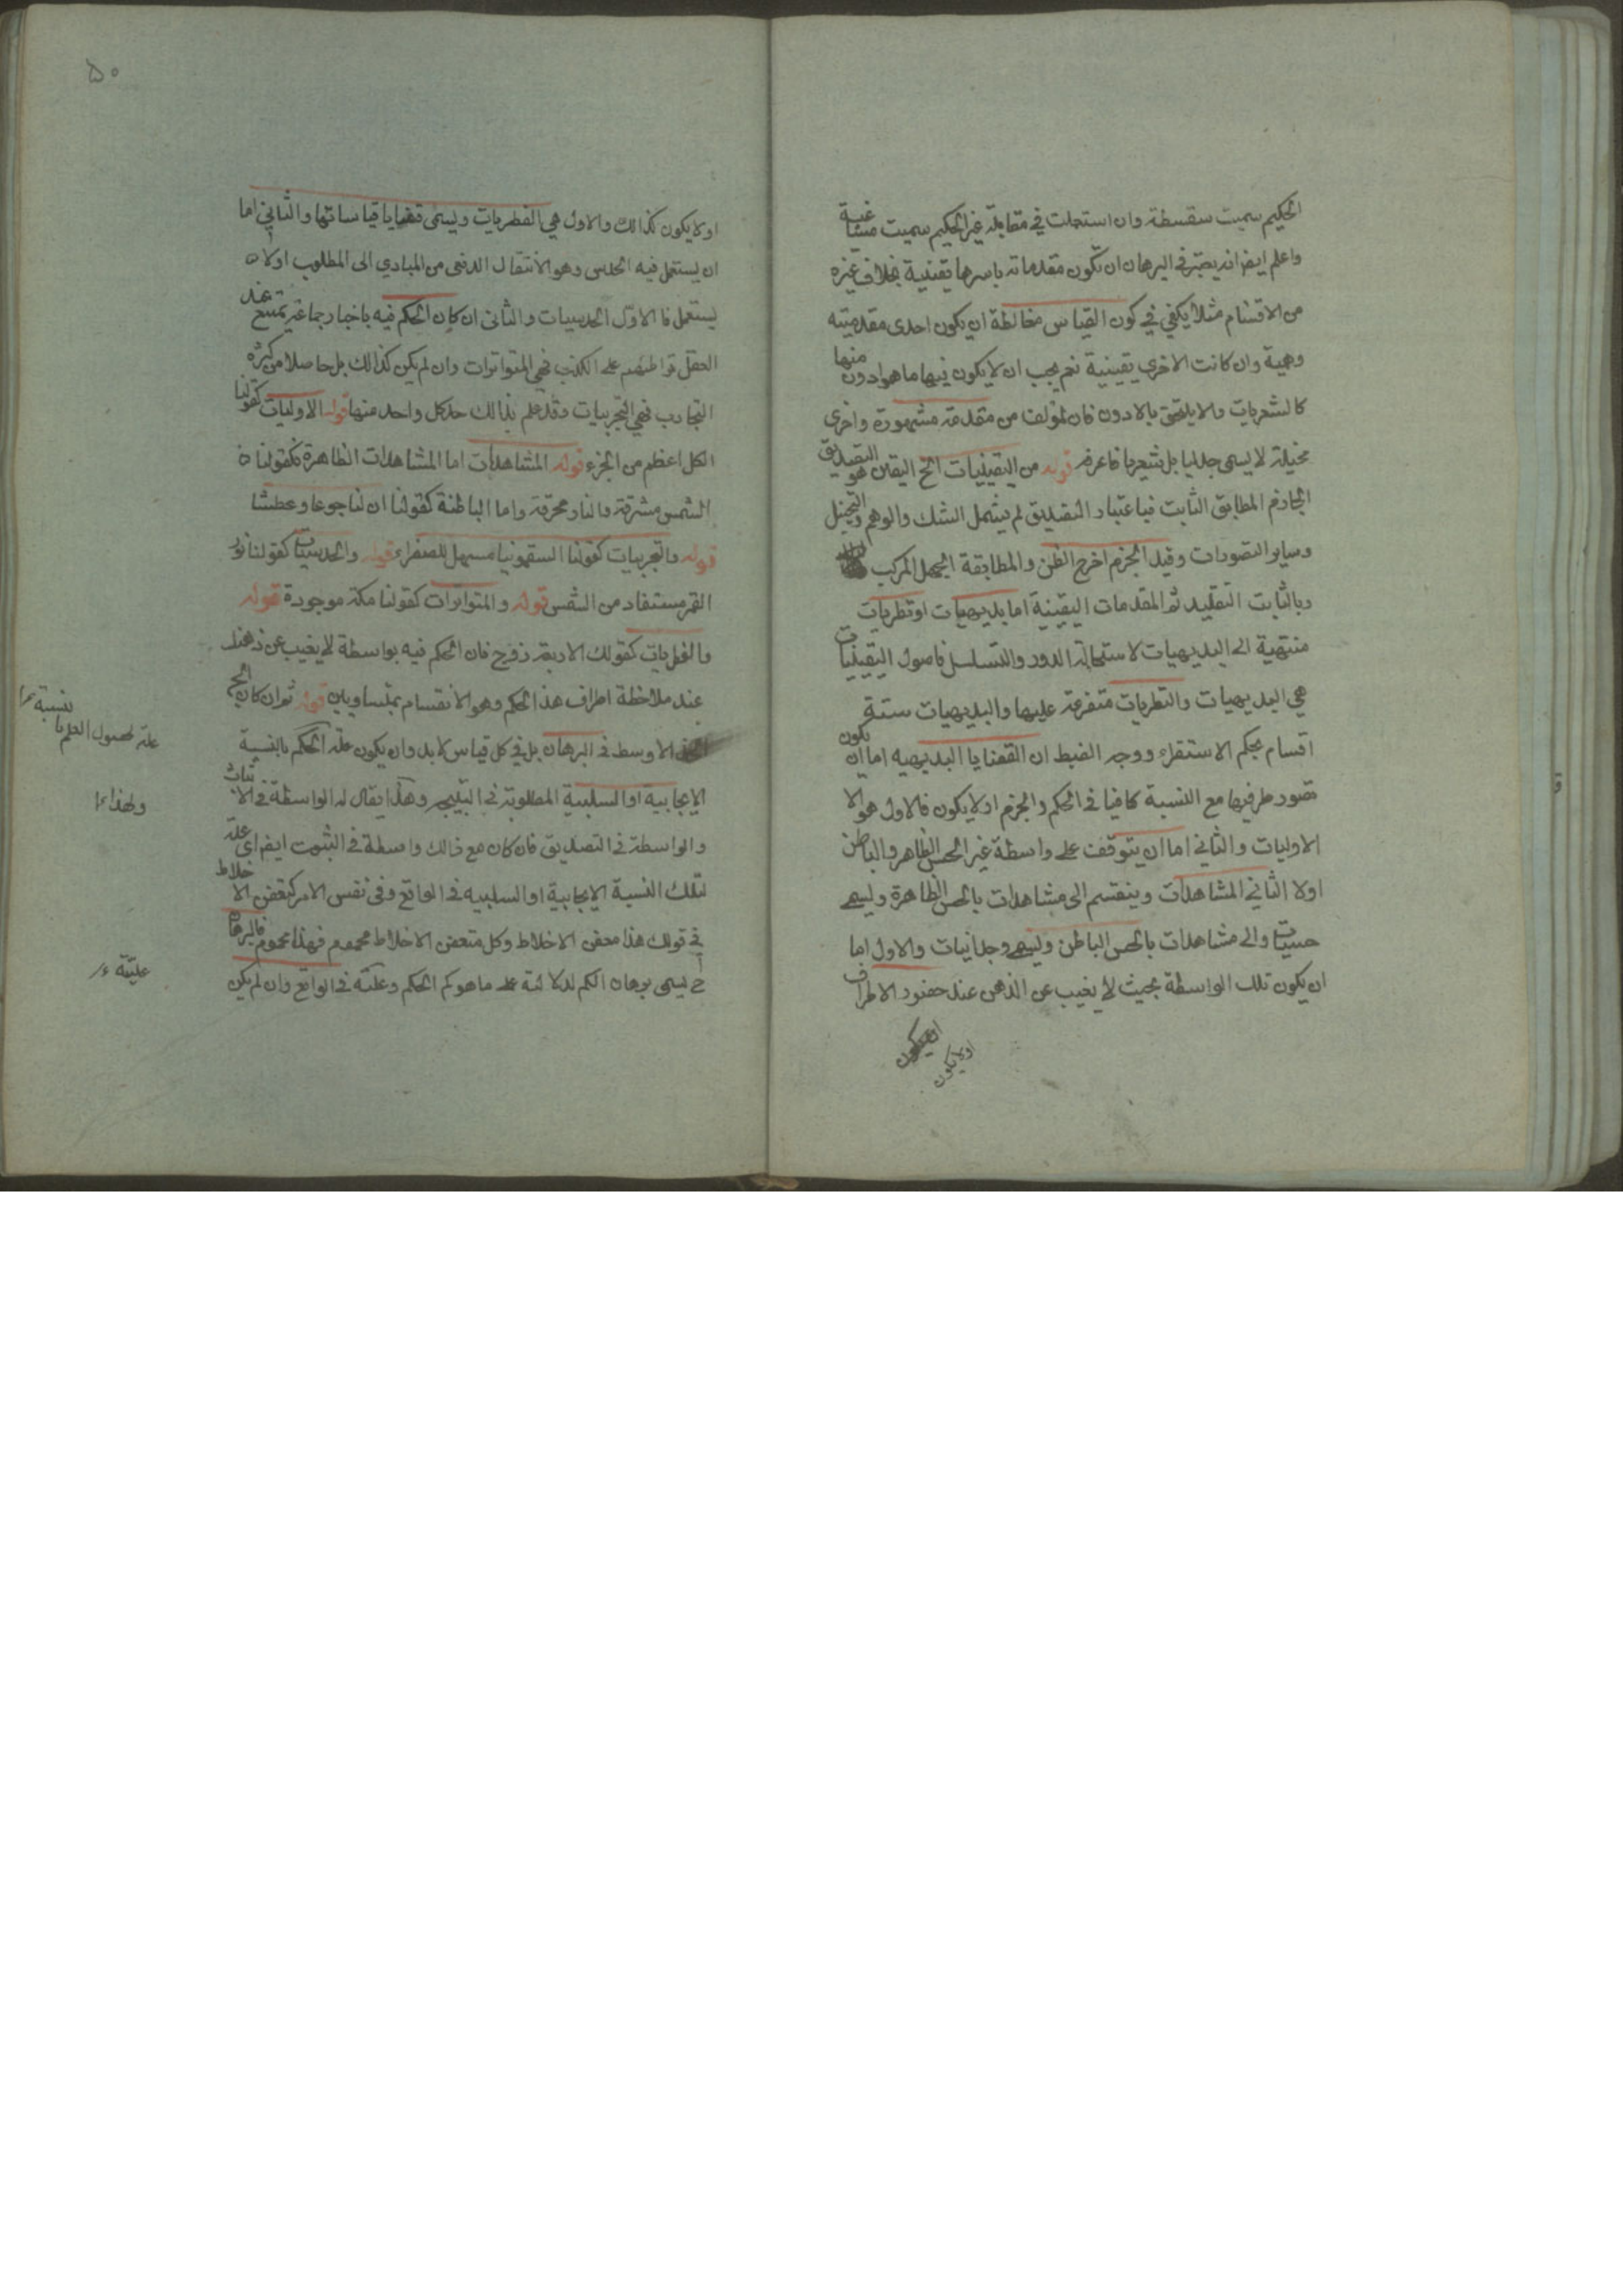 الحكيم سميت سفسطة وان استعملت في مقابلة غير الحكيم سميت مشاغبة
واعلم ايضا انه يعتبر في البرهان ان تكون مقدماته باسرها يقينية بخلاف غيره
من الاقسام مثلا يكفي في كون القياس مغالطة ان يكون احدى مقدمتيه
وهمية وان كانت الاخرى يقينية نعم يجب ان لا يكون فيها ما هو ادون منها
كالشعريات والا يلحق بالادون فان المؤلف من مقدمة مشهورة واخرى
مخيلة لا يسمى جدليا بل شعريا فاعرفه قوله من اليقينيات الخ اليقين هو التصديق
الجازم المطابق الثابت فباعتبار التصديق لم يشمل الشك والوهم والتخييل
وساير التصورات وقيد الجزم اخرج الظن والمطابقة الجهل المركب
وبالثابت التقليد ثم المقدمات اليقينة اما بديهيات او نظريات
منتهية الى البديهيات لاستحالة الدور والتسلسل فاصول اليقينيات
هي البديهيات والنظريات متفرعة عليها والبديهيات ستة
اقسام بحكم الاستقراء ووجه الضبط ان القضايا البديهيه اما ان يكون
تصور طرفيها مع النسبة كافيا في الحكم والجزم او لا يكون فالاول هو الا
الاوليات والثاني اما ان يتوقف على واسطة غير الحس الظاهر والباطن
اولا الثاني المشاهدات وينقسم الى مشاهدات بالحس الظاهرة ويسمى
حسيات والى مشاهدات بالحس الباطن ويسمى وجدانيات والاول اما
ان يكون تلك الواسطة بحيث لا يغيب عن الذهن عند حضور الاطراف
اولا يكون
٥٠
اولا يكون كذالك والاول هي الفطريات ويسمى قضايا قياساتها والثاني اما
ان يستعمل فيه الحدس وهو الانتقال الدفعى من المبادي الى المطلوب اولا
يستعمل فالاول الحدسيات والثانى ان كان الحكم فيه باخبار جماعة يمتنع عند
العقل تواطئهم على الكذب فهي المتواترات وان لم يكن كذالك بل حاصلا من كثرة
التجارب فهي التجربيات وقد علم بذالك حد كل واحد منها قوله الاوليات كقولنا
الكل اعظم من الجزء قوله المشاهدات اما المشاهدات الظاهرة فكقولنا
الشمس مشرقة والنار محرقة واما الباطنة كقولنا ان لنا جوعا وعطشا
قوله والتجربيات كقولنا السقمونيا مسهل للصفراء قوله والحدسيات كقولنا نور
القمر مستفاد من الشمس قوله والمتواترات كقولنا مكة موجودة قوله
والفطريات كقولك الاربعة زوج فان الحكم فيه بواسطة لا يغيب عن ذهنك
عند ملاحظة اطراف هذا الحكم وهو الانقسام بمتساويين قوله ثم ان كان الخ
الاوسط في البرهان بل في كل قياس لا بد وان يكون علة الحكم بالنسبة
علة لحصول العلم بالنسبة
الايجابية او السلبية المطلوبة في النتيجة وهكذا يقال له الواسطة في الاثبات
ولهذا
والواسطة في التصديق فان كان مع ذالك واسطة في الثبوت ايضا اى علة
لتلك النسبة الايجابية او السلبيه في الواقع وفي نفس الامر كتعفن الاخلاط
في قولك هذا متعفن الاخلاط وكل متعفن الاخلاط محموم فهذا محموم فالبرهان
ح يسمى برهان اللم لدلالته على ما هو لم الحكم وعلته في الواقع وان لم يكن
عليّة